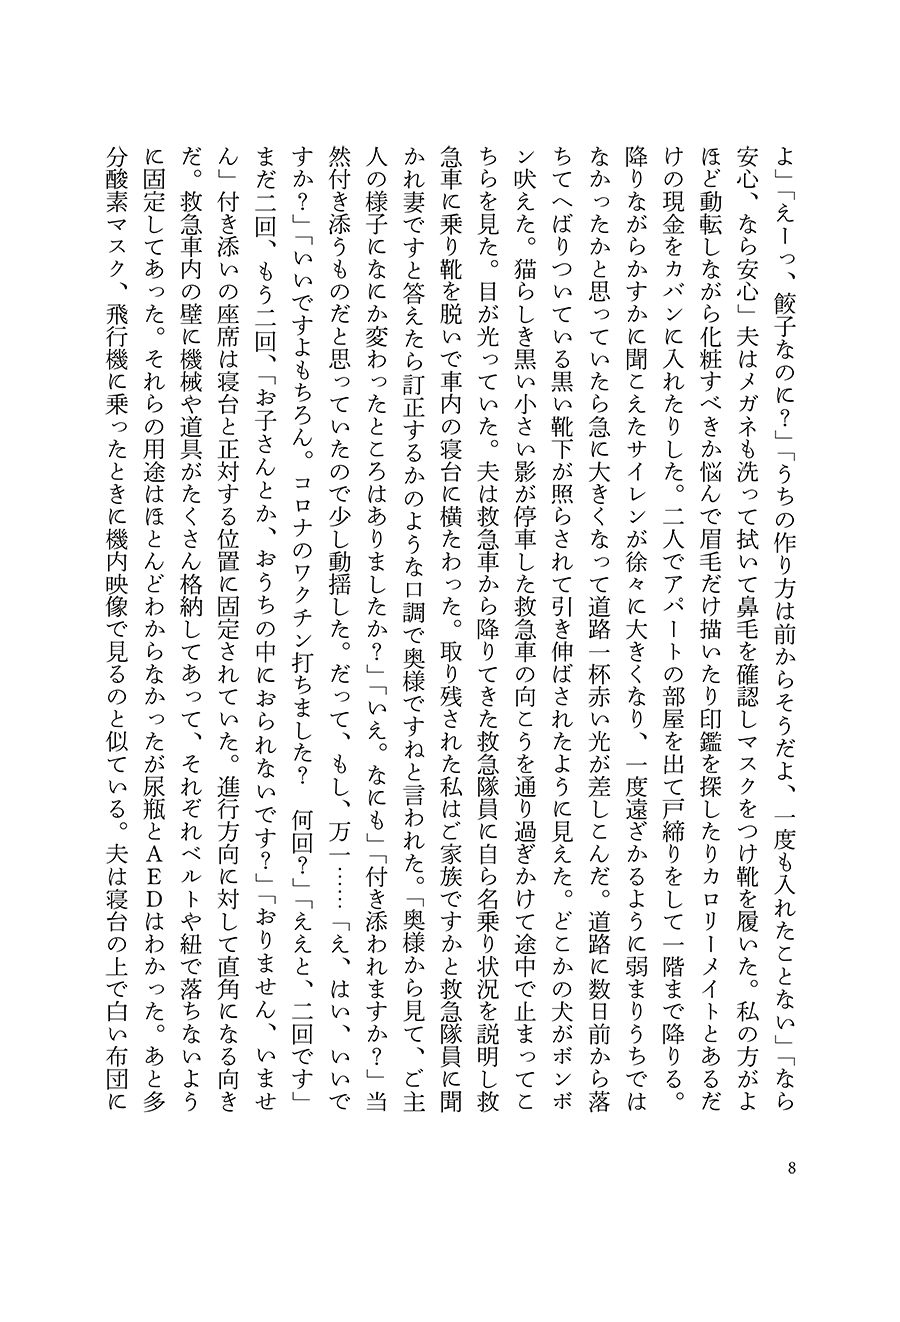 よ」「えーっ、餃子なのに？」「うちの作り方は前からそうだよ、一度も入れたことない」「なら
安心、なら安心」夫はメガネも洗って拭いて鼻毛を確認しマスクをつけ靴を履いた。私の方がよ
ほど動転しながら化粧すべきか悩んで眉毛だけ描いたり印鑑を探したりカロリーメイトとあるだ
けの現金をカバンに入れたりした。二人でアパートの部屋を出て戸締りをして一階まで降りる。
降りながらかすかに聞こえたサイレンが徐々に大きくなり、一度遠ざかるように弱まりうちでは
なかったかと思っていたら急に大きくなって道路一杯赤い光が差しこんだ。道路に数日前から落
ちてへばりついている黒い靴下が照らされて引き伸ばされたように見えた。どこかの犬がボンボ
ン吠えた。猫らしき黒い小さい影が停車した救急車の向こうを通り過ぎかけて途中で止まってこ
ちらを見た。目が光っていた。夫は救急車から降りてきた救急隊員に自ら名乗り状況を説明し救
急車に乗り靴を脱いで車内の寝台に横たわった。取り残された私はご家族ですかと救急隊員に聞
かれ妻ですと答えたら訂正するかのような口調で奥様ですねと言われた。「奥様から見て、ご主
人の様子になにか変わったところはありましたか？」「いえ。なにも」「付き添われますか？」当
然付き添うものだと思っていたので少し動揺した。だって、もし、万一……「え、はい、いいで
すか？」「いいですよもちろん。コロナのワクチン打ちました？　何回？」「ええと、二回です」
まだ二回、もう二回、「お子さんとか、おうちの中におられないです？」「おりません、いませ
ん」付き添いの座席は寝台と正対する位置に固定されていた。進行方向に対して直角になる向き
だ。救急車内の壁に機械や道具がたくさん格納してあって、それぞれベルトや紐で落ちないよう
に固定してあった。それらの用途はほとんどわからなかったが尿瓶とAEDはわかった。あと多
分酸素マスク、飛行機に乗ったときに機内映像で見るのと似ている。夫は寝台の上で白い布団に
8